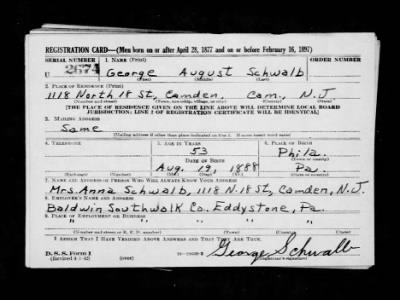 REGISTRATION CARD—(Men born on or after April 28, 1877 and on or before February 16, 1897)
SERIAL NUMBER 1. NAME (Print) ORDER NUMBER
U 2674 George August Schwalb
(First) (Middle) (Last)
2. PLACE OF RESIDENCE (Print)
1118 North 18 St, Camden, Cam., N.J.
(Number and street) (Town, township, village, or city) (County) (State)
[THE PLACE OF RESIDENCE GIVEN ON THE LINE ABOVE WILL DETERMINE LOCAL BOARD
JURISDICTION; LINE 2 OF REGISTRATION CERTIFICATE WILL BE IDENTICAL]
3. MAILING ADDRESS
Same
[Mailing address if other than place indicated on line 2. If same insert word same]
4. TELEPHONE 5. AGE IN YEARS 6. PLACE OF BIRTH
53 Phila.
DATE OF BIRTH (Town or county)
Aug. 19, 1888 Pa.
(Mo.) (Day) (Yr.) (State or country)
7. NAME AND ADDRESS OF PERSON WHO WILL ALWAYS KNOW YOUR ADDRESS
Mrs. Anna Schwalb, 1118 N. 18 St, Camden, N.J.
8. EMPLOYER'S NAME AND ADDRESS
Baldwin Southwalk Co. Eddystone, Pa.
9. PLACE OF EMPLOYMENT OR BUSINESS
" " " "
(Number and street or R. F. D. number) (Town) (County) (State)
I AFFIRM THAT I HAVE VERIFIED ABOVE ANSWERS AND THAT THEY ARE TRUE.
D. S. S. Form 1
(Revised 4-1-42) (over) George Schwalb